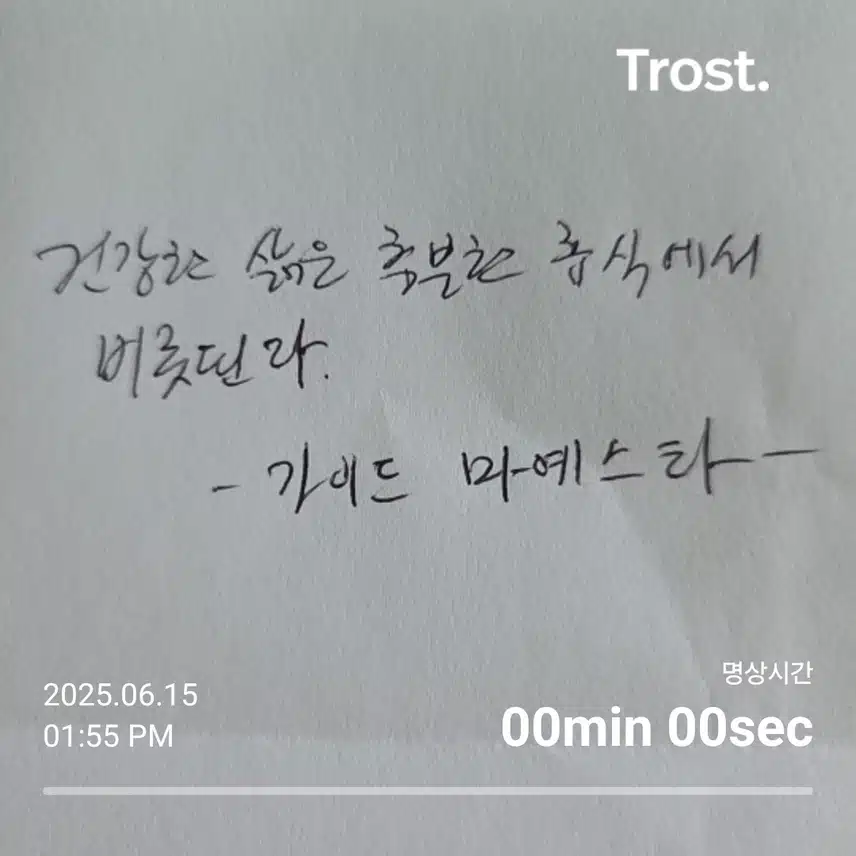 Trost.
건강한 삶은 축분한 휴식에서
버릇된다.
- 가이드 마예스타 -
2025.06.15
01:55 PM
명상시간
00min 00sec